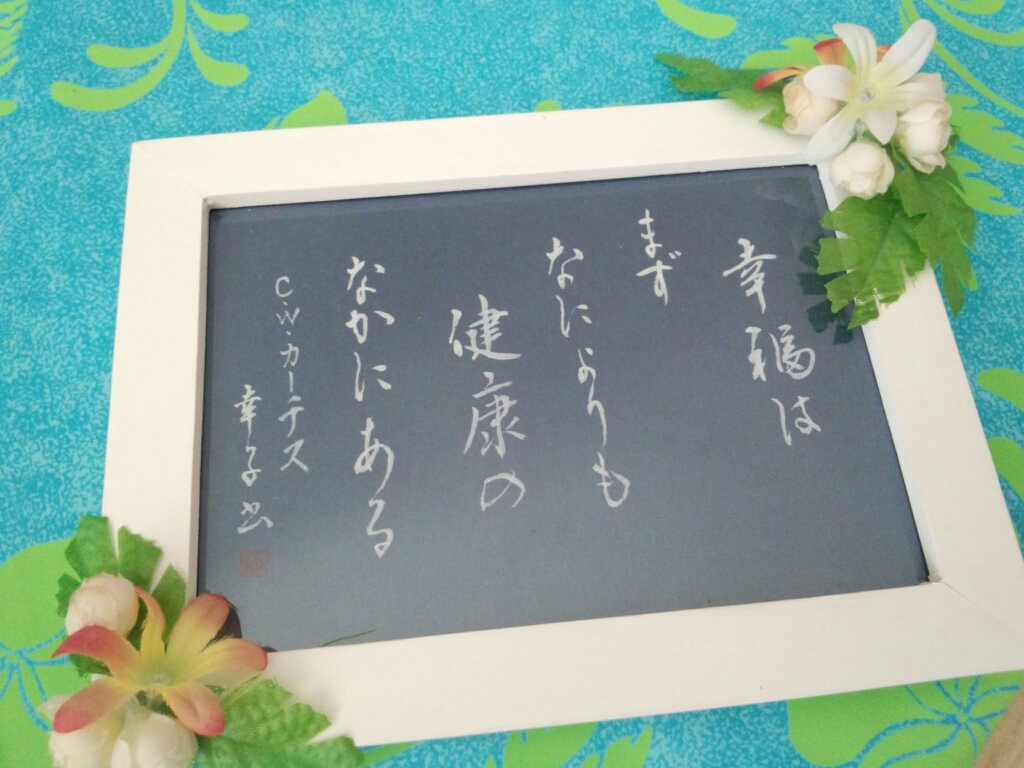 幸福は
まず
なによりも
健康の
なかにある
C・W・カーテス
幸子書